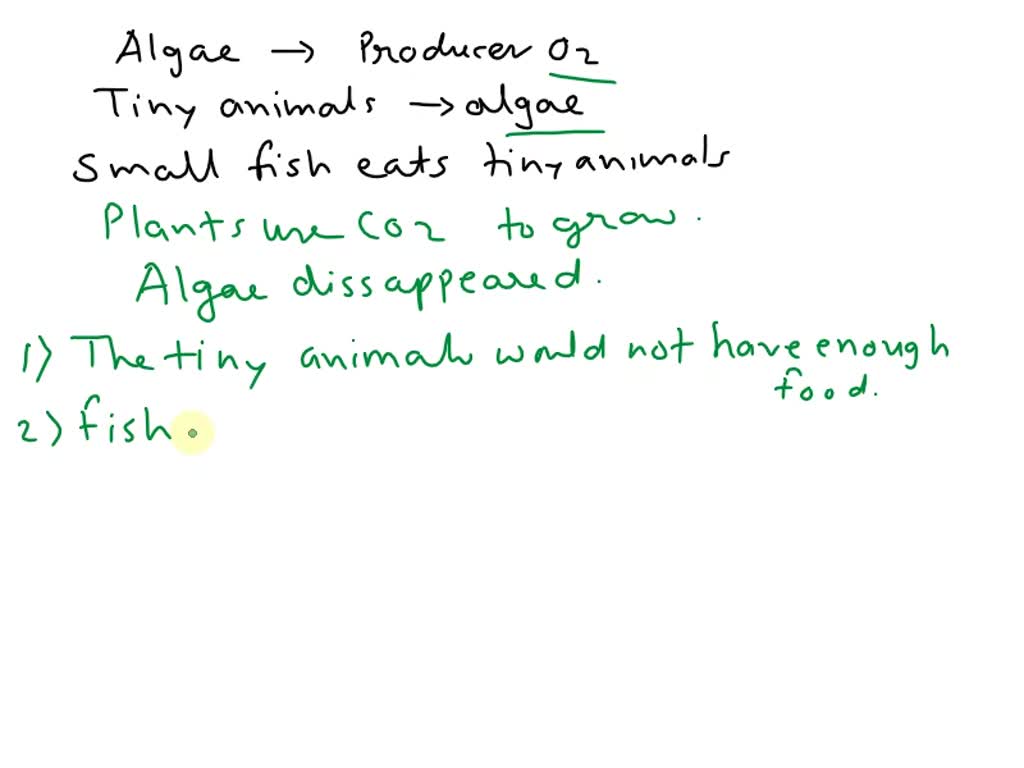 Algae → Producer O2
Tiny animals → algae
Small fish eats tiny animals
Plants use CO2 to grow.
Algae dissappeared.
1) The tiny animals would not have enough
food.
2) fish